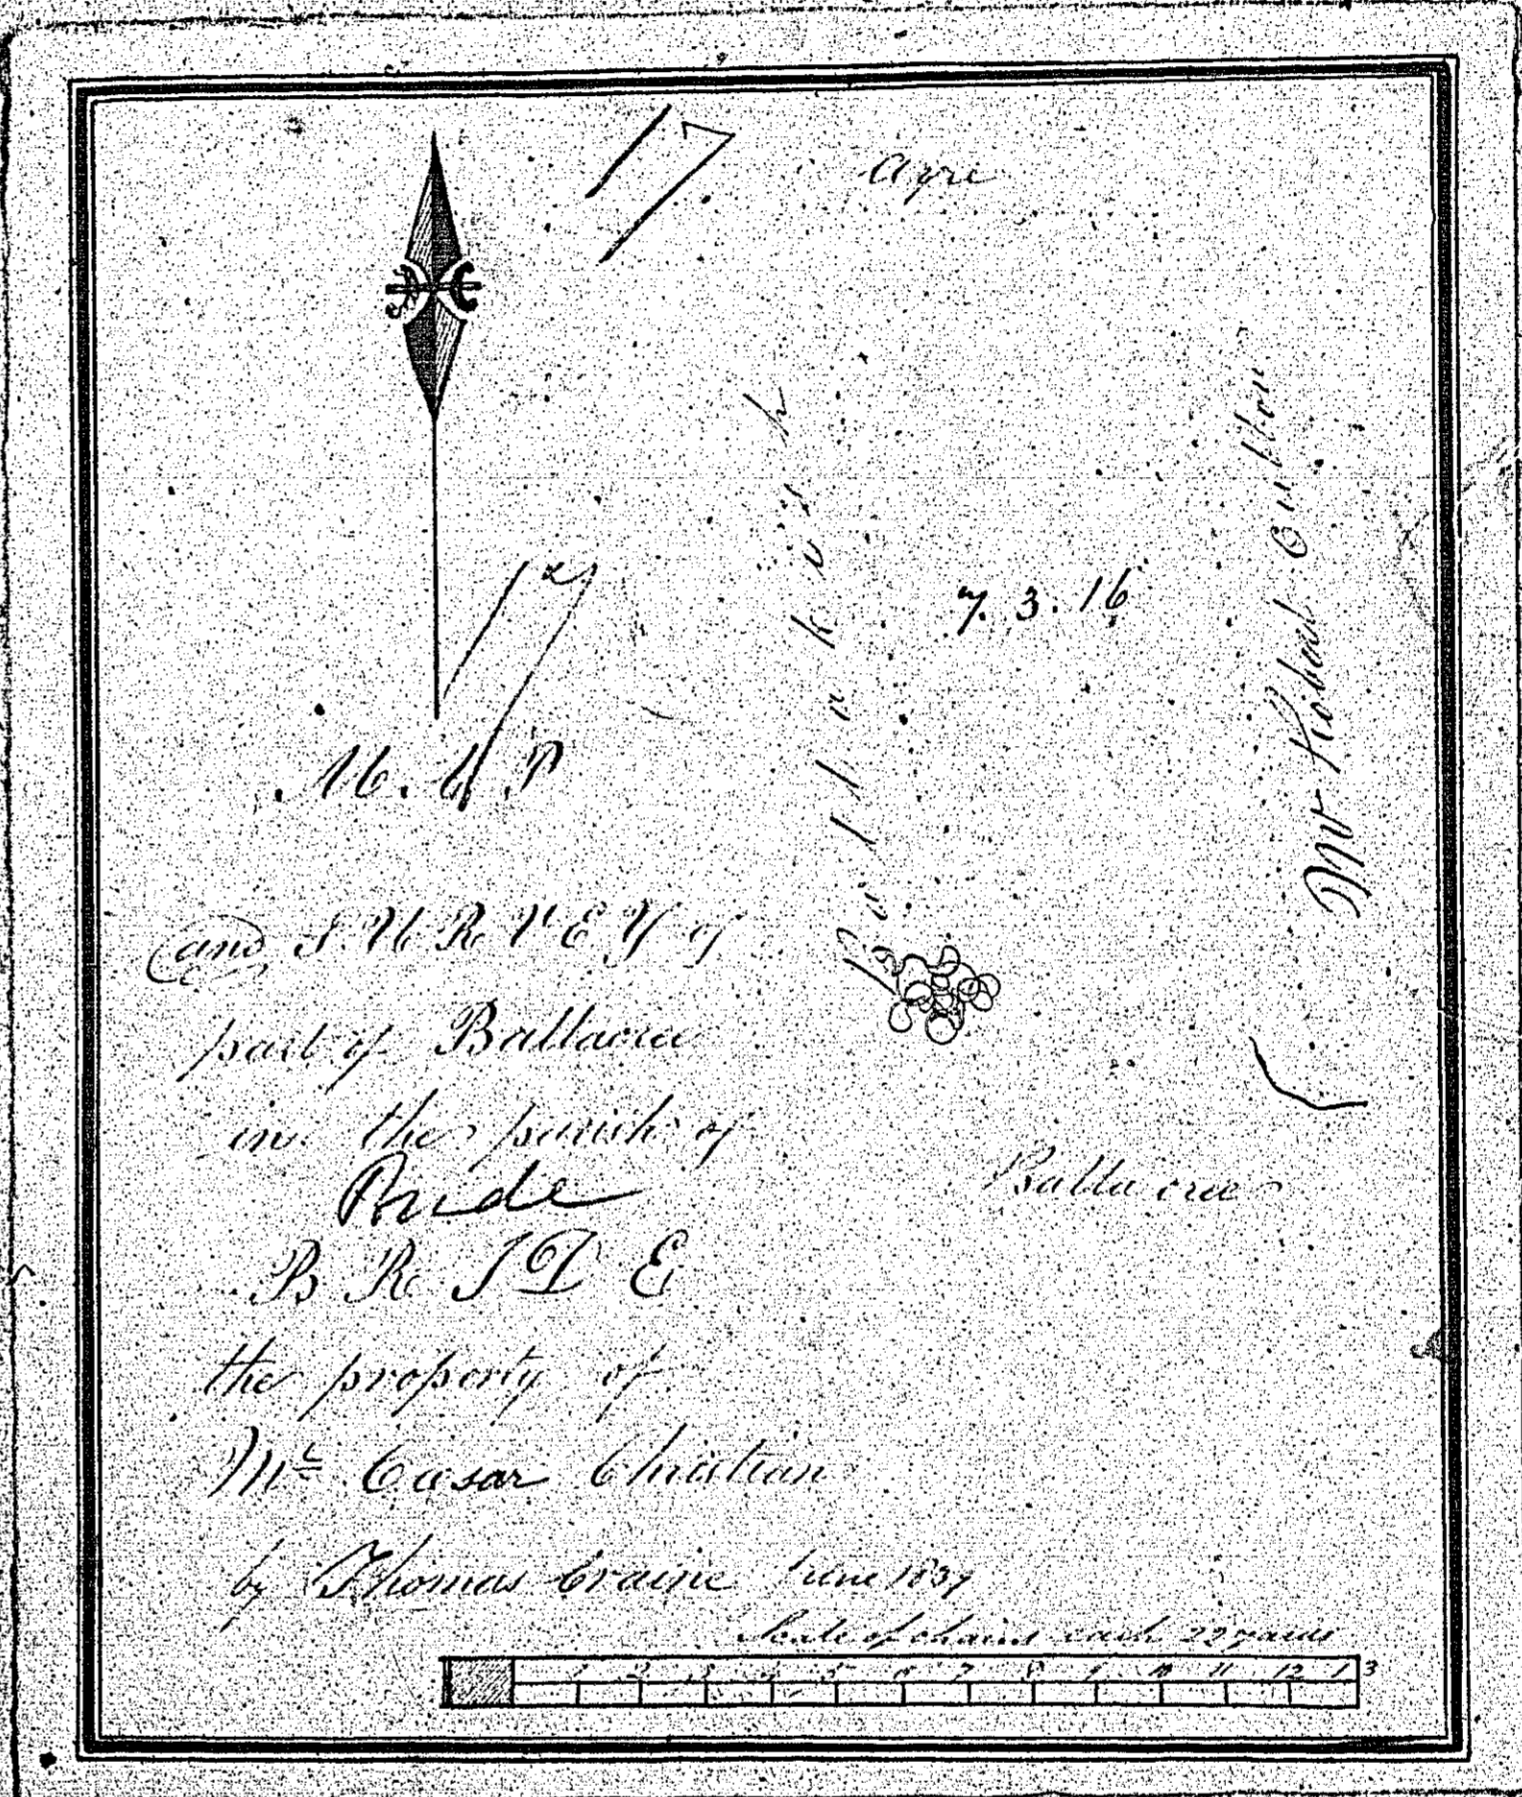 17.
Ayre
7. 3. 16
Mr Robert
MAP
and SURVEY of
part of Ballacree
in the parish of
Bride
BRIDE
the property of
Mr Cæsar Christian
by Thomas Craine June 1837
Ballacree
Scale of chains each 22 yards
1 2 3 4 5 6 7 8 9 10 11 12 13